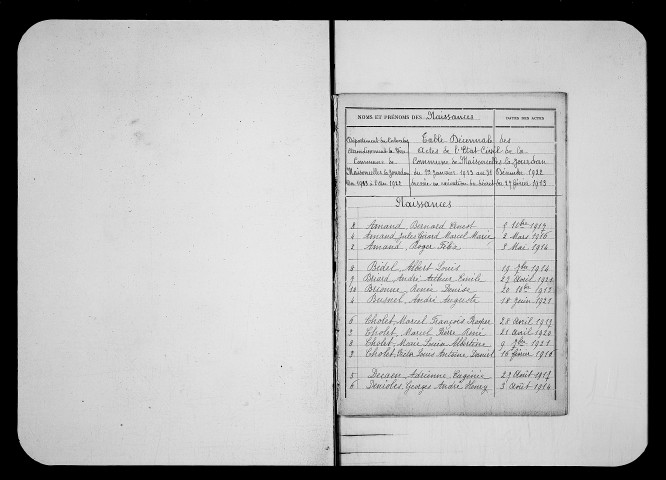 NOMS ET PRÉNOMS DES Naissances DATES DES ACTES
Département du Calvados
Arrondissement de Vire
Commune de
Maisoncelles la Jourdan
1913 à 1922
Table Décennale des
Actes de l'Etat Civil de la
Commune de Maisoncelles la Jourdan
du 1er Janvier 1913 au 31 Décembre 1922
dressée en exécution du décret du février 1913
Naissances
Amand Bernard Ernest 8 1917
4 Amand Jules Gérard Marcel Marie 2 Mars 1916
2 Amand Roger Félix Mai 1914
Bidel Albert Louis 19 7bre 1914
Briard André Arthur Emile Avril 1921
10 Brionne Renée Denise 20 1913
4 Busnel André Auguste 18 juin 1921
6 Cholet Marcel François 28 Avril 1913
Cholet Marcel Pierre René 21 Avril 1920
8 Cholet Marie Lucia Albertine 9 7bre 1921
Cholet Louis Antoine Daniel 16 février 1916
5 Decaen Adrienne Eugénie Août 1913
6 Denioles Georges André Henry 3 Août 1914